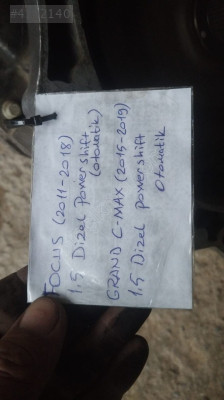 FOCUS (2011-2018)
1,5 Dizel powershift
(otomatik)
GRAND C-MAX (2015-2019)
1,5 Dizel powershift
Otomatik